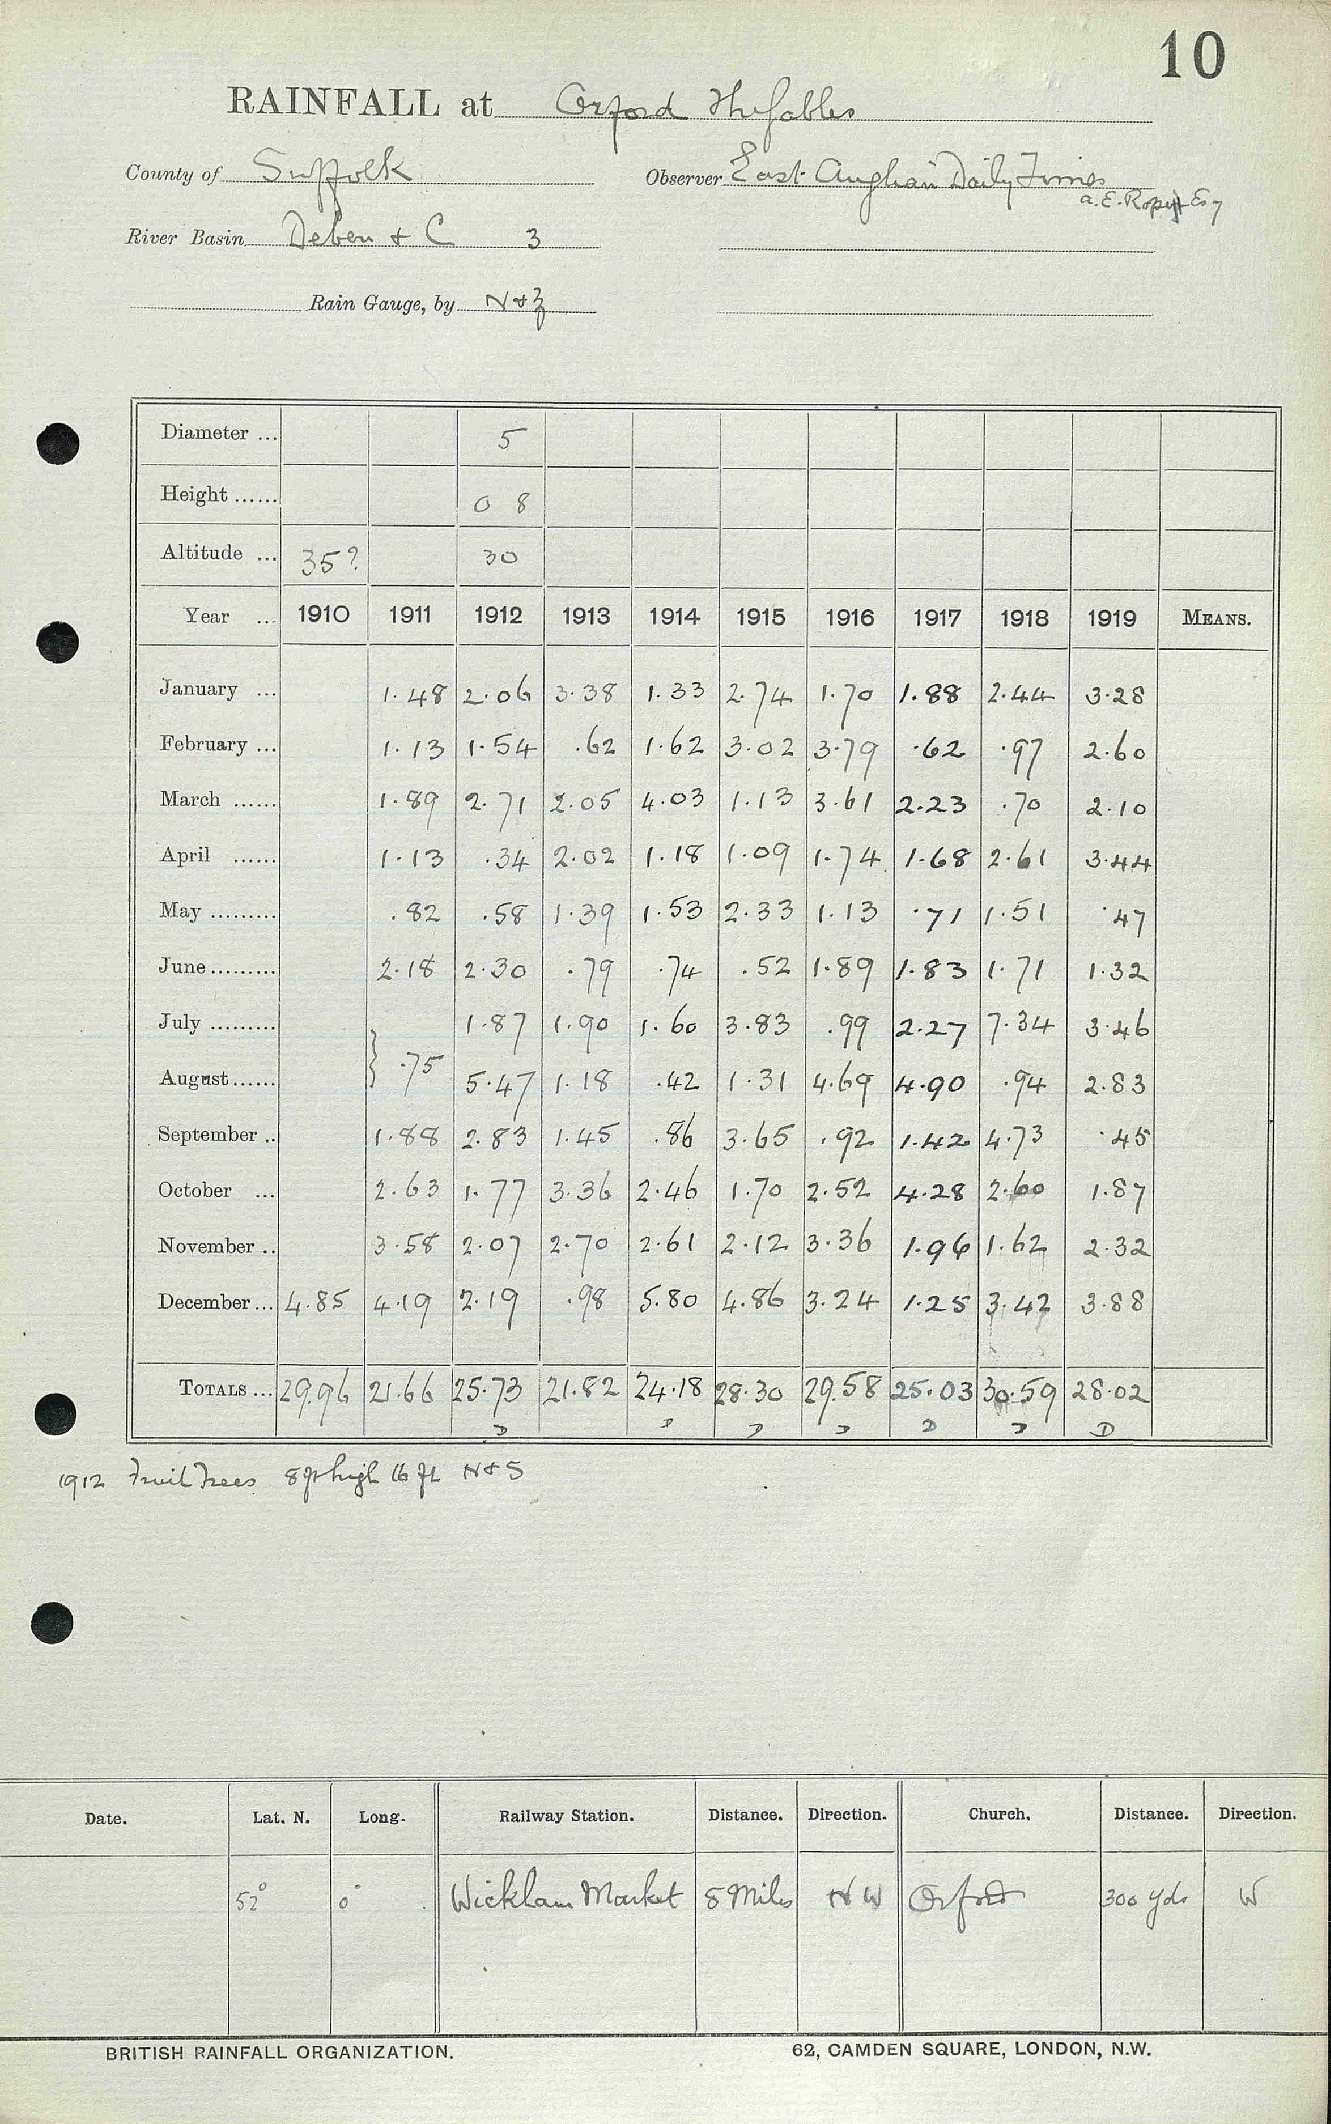 10
RAINFALL at Orford The Gables
County of Suffolk Observer East Anglian Daily Times
A. E. Roper Esq
River Basin Deben & C 3
Rain Gauge, by N & Z
Diameter ... 5
Height ...... 0 8
Altitude ... 35? 30
Year ... 1910 1911 1912 1913 1914 1915 1916 1917 1918 1919 MEANS.
January ... 1.48 2.06 3.38 1.33 2.74 1.70 1.88 2.44 3.28
February ... 1.13 1.54 .62 1.62 3.02 3.79 .62 .97 2.60
March ...... 1.89 2.71 2.05 4.03 1.13 3.61 2.23 .70 2.10
April ...... 1.13 .34 2.02 1.18 1.09 1.74 1.68 2.61 3.44
May ......... .82 .58 1.39 1.53 2.33 1.13 .71 1.51 .47
June ......... 2.18 2.30 .79 .74 .52 1.89 1.83 1.71 1.32
July ......... 1.87 1.90 1.60 3.83 .99 2.27 7.34 3.46
} .75
August ...... 5.47 1.18 .42 1.31 4.69 4.90 .94 2.83
September .. 1.88 2.83 1.45 .86 3.65 .92 1.42 4.73 .45
October ... 2.63 1.77 3.36 2.46 1.70 2.52 4.28 2.60 1.87
November .. 3.58 2.07 2.70 2.61 2.12 3.36 1.96 1.62 2.32
December ... 4.85 4.19 2.19 .98 5.80 4.86 3.24 1.25 3.42 3.88
TOTALS ... 29.96 21.66 25.73 21.82 24.18 28.30 29.58 25.03 30.59 28.02
D D D D D D D
1912 Fruit Trees 8 ft high 16 ft N & S
Date. Lat. N. Long. Railway Station. Distance. Direction. Church. Distance. Direction.
52° 0° Wickham Market 8 Miles NW Orford 300 yds W
BRITISH RAINFALL ORGANIZATION. 62, CAMDEN SQUARE, LONDON, N.W.